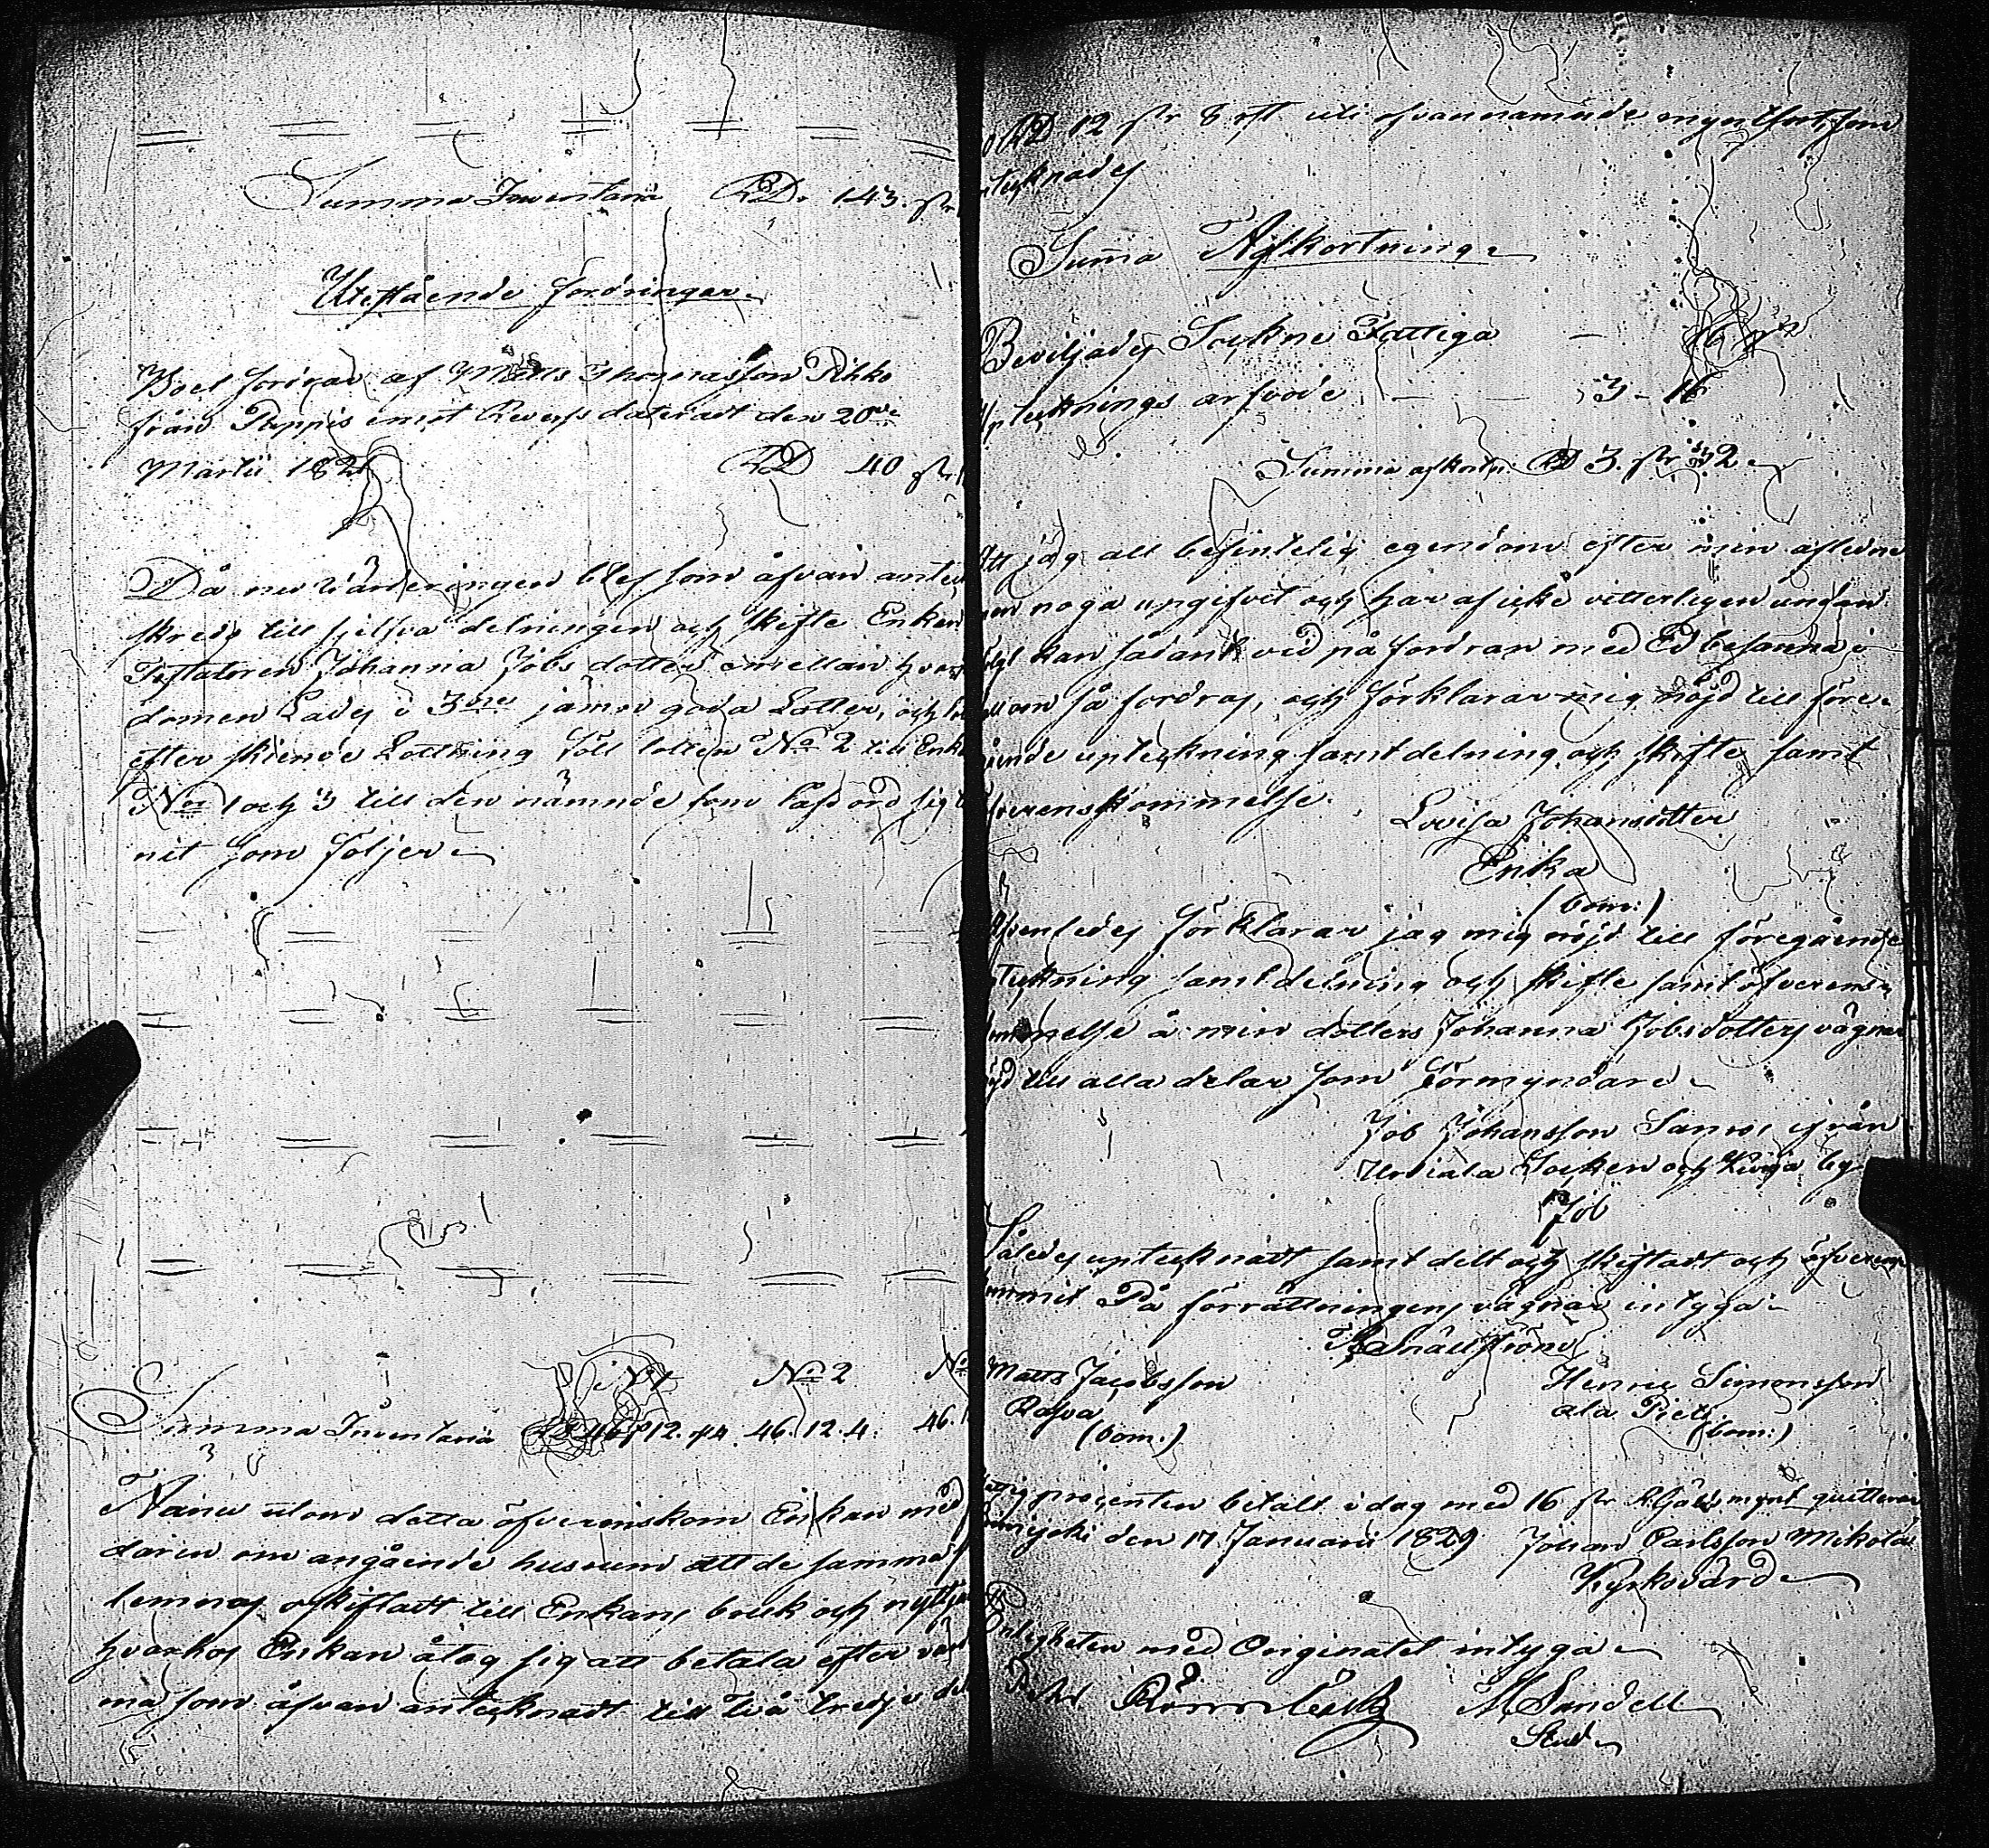 Summa Inventarii RD. 143. sk
Utestående fordringar
Boet fordrar af Matts Thomasson Rikko
från Pappis emot Revers daterat den 20de
Martii 182 RD 40 sk
Då nu värderingen blef som åfvan anteck
skreds till sjelfva delningen och skifte Enkan
Testatoren Johanna Jobs dotter emellan hvar
domen Lades i 3ne jämn goda Lotter, och
efter skiende Lottning föll lotten No 2 till Enk
Nris 1 och 3 till den nämnde som
nit som följer
No 1 No 2 No
Summa Inventarii 46. 12. 4. 46. 12. 4. 46.
Ännu utom detta öfverenskom Enkan med
daren om angående husrum att de samma
lemnas oskiftadt till Enkans bruk och nyttj
hvarhos Enkan åtog sig att betala efter vär
ma som åfvan antecknadt till två tredje del
RD 12 sk 8 rst uti ofvannämnde myntsort, som
tecknades
Suma Afkortning
Beviljades Sockne Fattiga — 16
upteckningsarfvode — — 3 - 16
Summa afkortn: RD 3. sk 32
Att jag all befintelig egendom efter min afledne
man noga uppgifvit och har af icke vitterligen undan
kan sådant vid på fordran med Ed besanna i
om så fordras, och förklarar mig nöjd till före-
ående upteckning samt delning och skifte samt
fverenskommelse.
Lovisa Johansdotter
Enka
(bom:)
fvenledes förklarar jag mig nöjd till föregående
teckning samt delning och skifte samt öfverens-
mmelse å min dotters Johanna Jobsdotters vägnar
jd till alla delar som Förmyndare
Job Johansson Sanni ifrån
Urdiala Socken och by
Job
Således uptecknadt samt delt och skiftadt och öfverens
ommit På förrättningens vägnar intyga
Smällström
Matts Jacobsson Henric Simonsson
Rasva ala Pieti
(bom.) (bom:)
attig procenten betalt i dag med 16 sk R:Gälds mynt quitterar
den 17 Januarii 1829 Johan Carlsson Mikola
Kyrkovärd
Enligheten med Originalet intyga
M Sundell
Stud